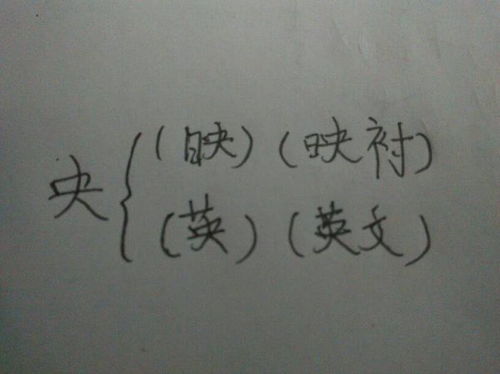 央{(映)(映衬)
(英)(英文)